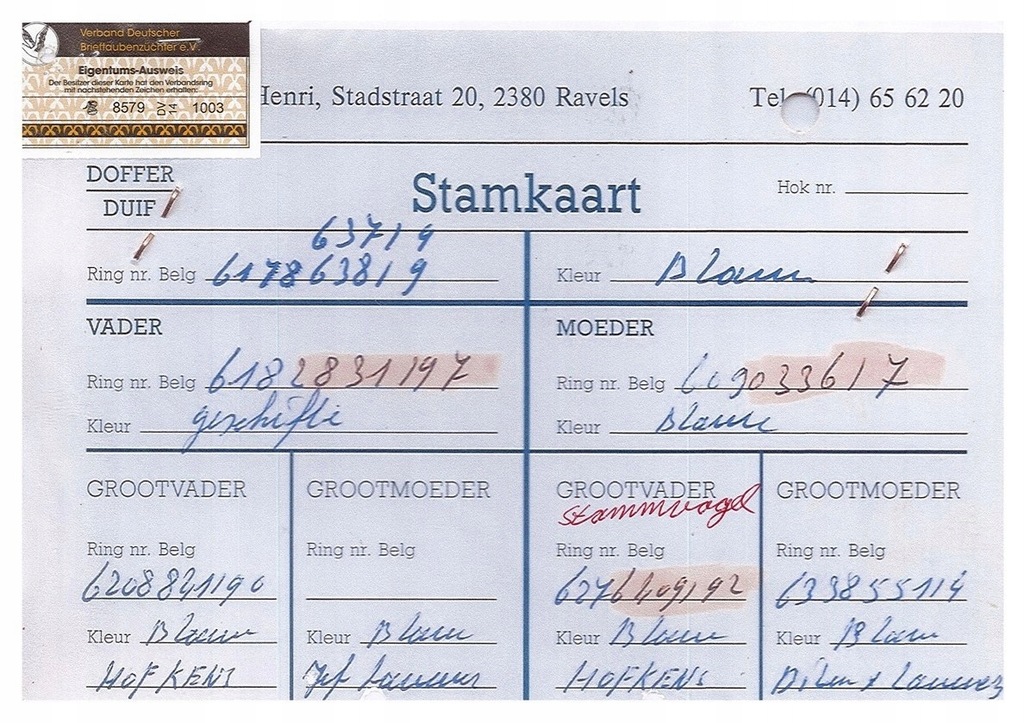 Verband Deutscher
Brieftaubenzüchter e.V.
Eigentums-Ausweis
Der Besitzer dieser Karte hat den Verbandsring
mit nachstehenden Zeichen erhalten:
8579 DV 14 1003
Henri, Stadstraat 20, 2380 Ravels
Tel. (014) 65 62 20
DOFFER
DUIF
Stamkaart
Hok nr.
63719
Ring nr. Belg 617863819
Kleur Blauw
VADER
MOEDER
Ring nr. Belg 6182831197
Ring nr. Belg 609033617
Kleur geschifte
Kleur Blauw
GROOTVADER
GROOTMOEDER
GROOTVADER
GROOTMOEDER
stammvogel
Ring nr. Belg
Ring nr. Belg
Ring nr. Belg
Ring nr. Belg
6208821190
6276409192
633855114
Kleur Blauw
Kleur Blauw
Kleur Blauw
Kleur Blauw
HOFKENS
Jef
HOFKENS